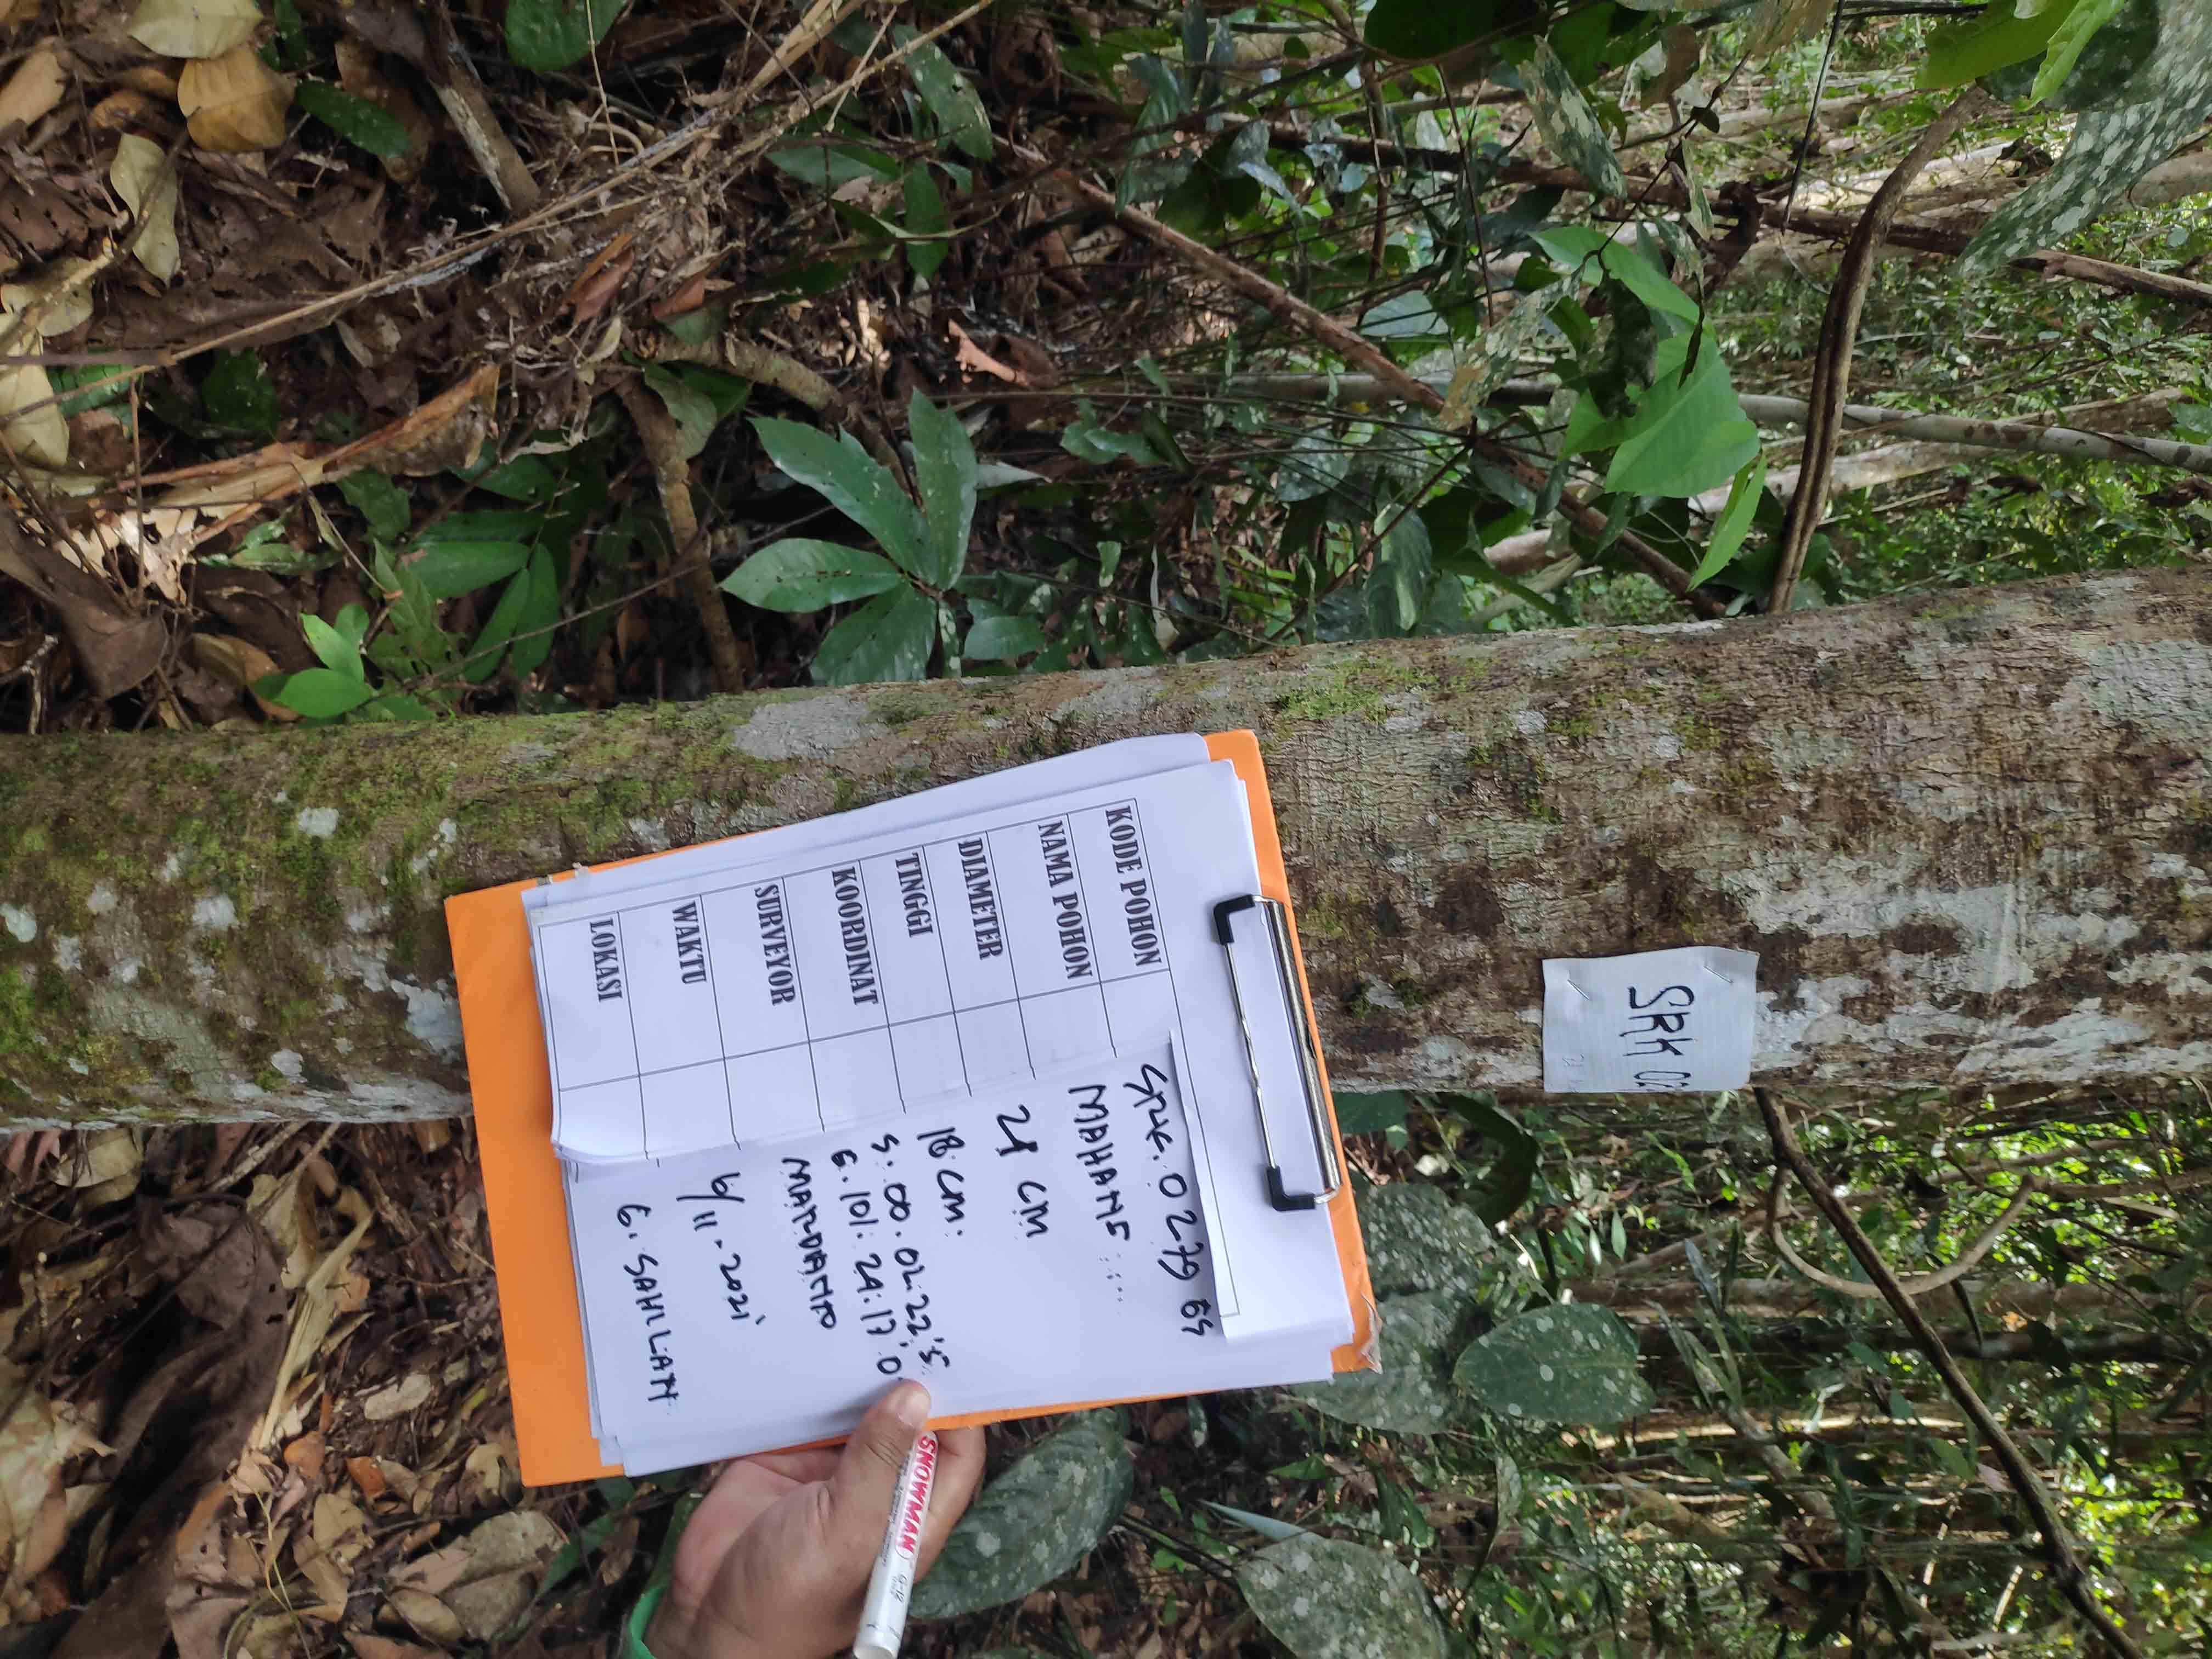 SRK 02
KODE POHON SRK. 0279 GS
NAMA POHON MAHANG
DIAMETER 21 CM
TINGGI 18 CM.
KOORDINAT S. 00. 02. 22'5
E. 101. 24. 17'0
SURVEYOR MARDIANTO
WAKTU 6/11-2021
LOKASI G. SAHILAN
SNOWMAN
G-12